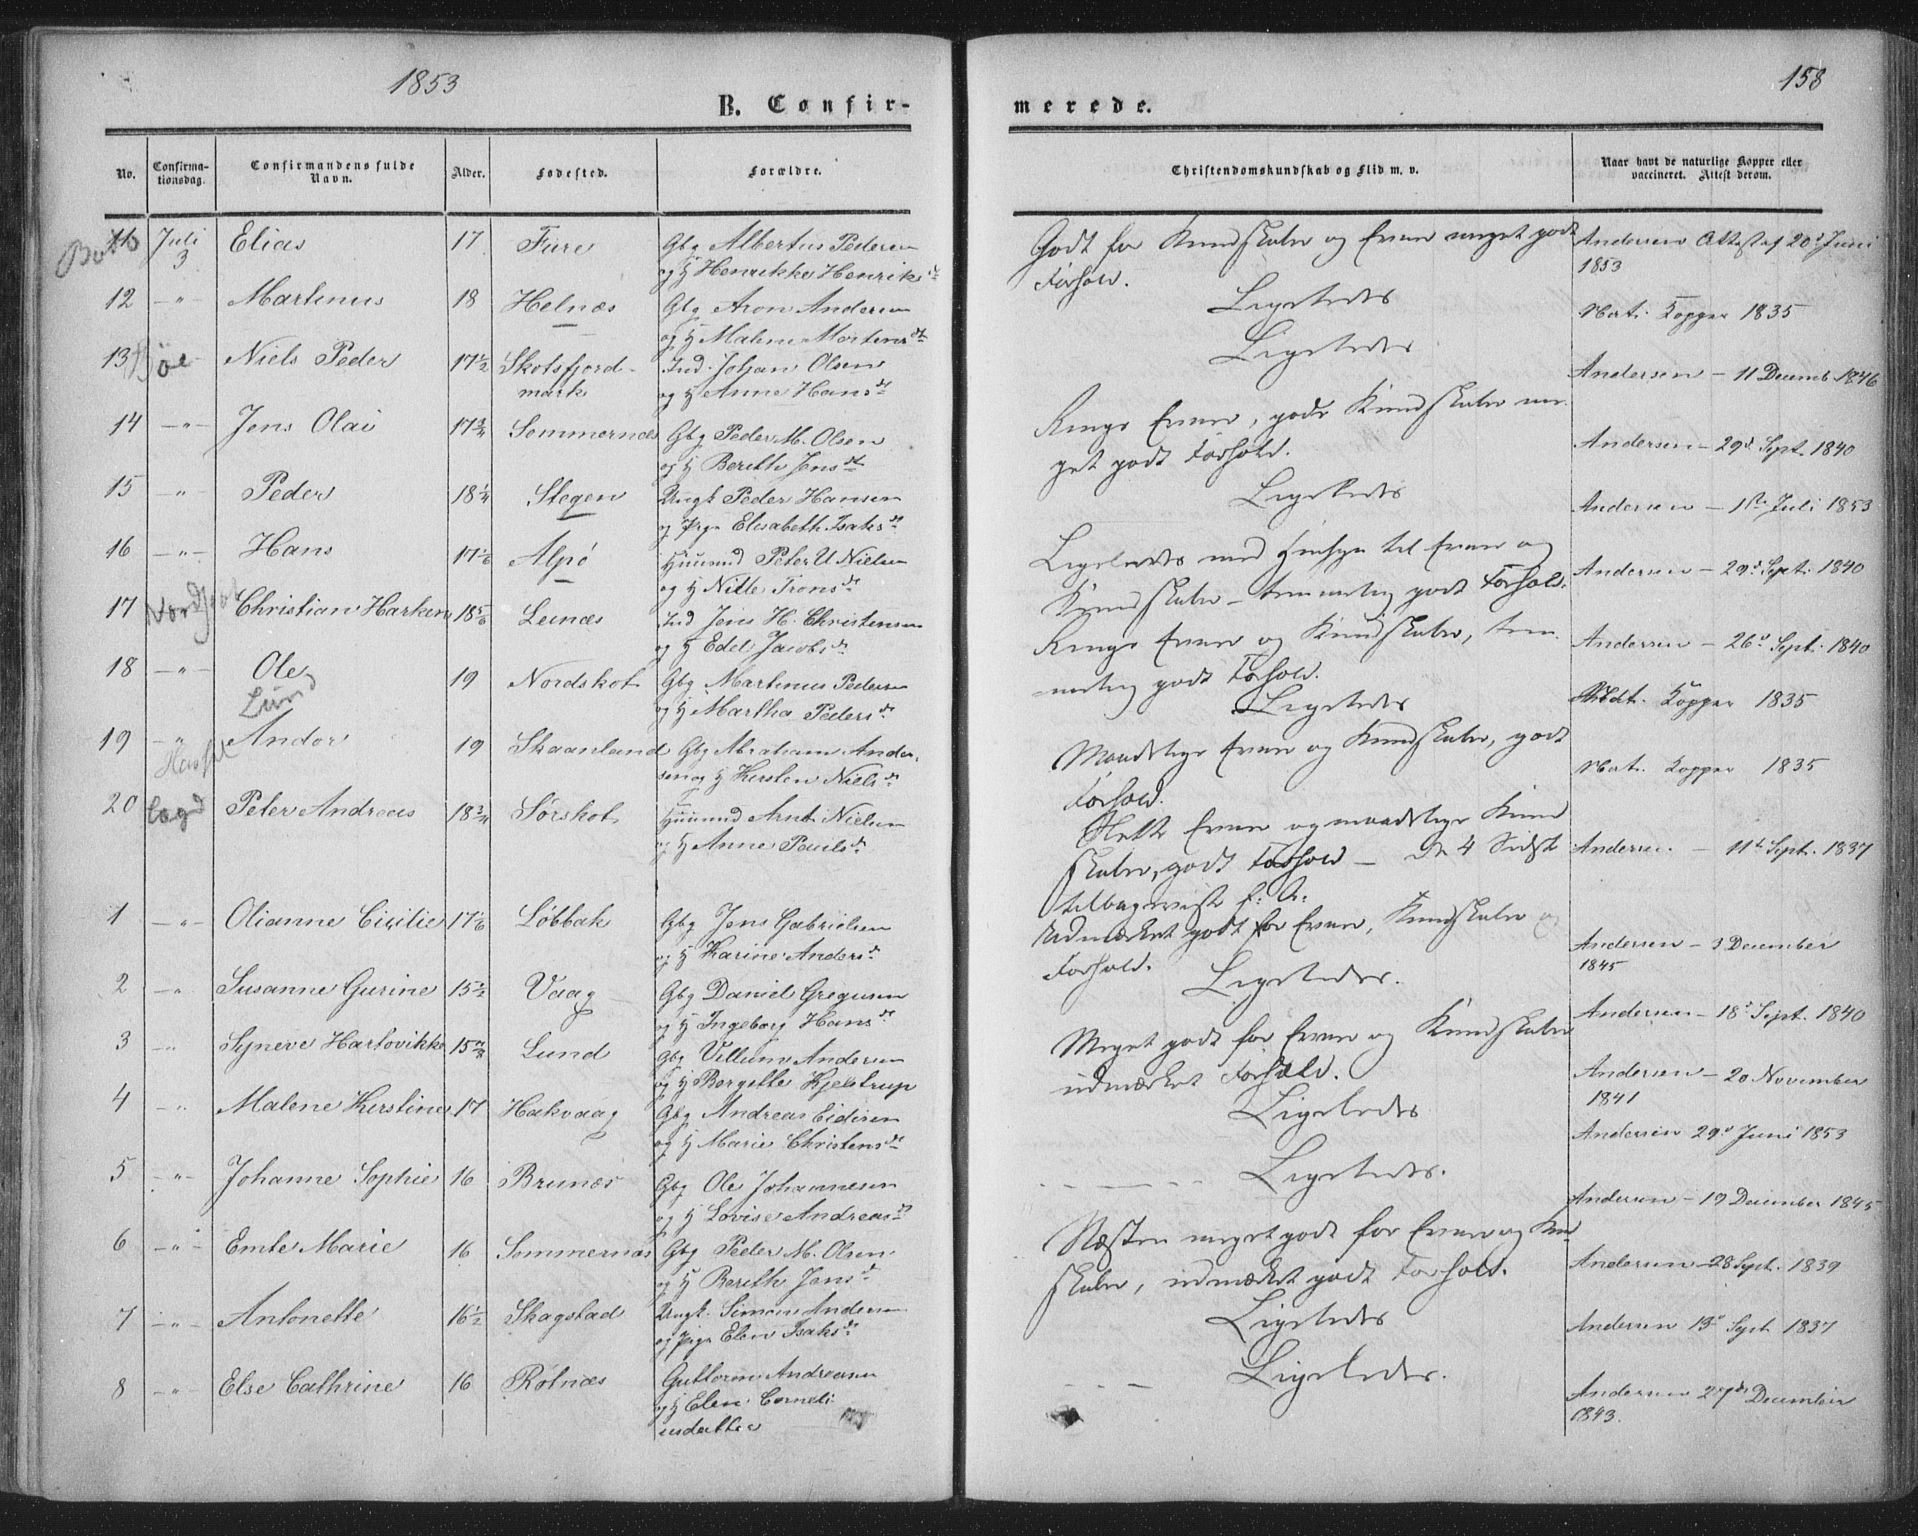 1853
158
B. Confir-
merede.
No.
Confirma-
tionsdag.
Confirmandens fulde
Navn.
Alder.
Fødested.
Forældre.
Christendomskundskab og Flid m. v.
Naar havt de naturlige Kopper eller
vaccineret. Attest derom.
11 Juli 3 Elias 17 Fure Gbg Albertus Pedersen
og H Henrikke Henriksdt
Godt for Kundskaber og Evner meget godt
Forhold.
Andersen Attest af 20d Juni
1853
12 -"- Martinus 18 Helnæs Gbg Aron Andersen
og H Malene Mortensdt
Ligeledes
Nat. Kopper 1835
13 Niels Peder 17½ Skotsfjord-
mark Ind. Johan Olsen
og H Anne Hansdt
Ligeledes
Andersen - 11 Decemb. 1846
14 -"- Jens Olai 17¾ Sommernæs Gbg Peder M. Olsen
og H Berith Jensdt
Ringe Evner, gode Kundskaber me-
get godt Forhold.
Andersen - 29d Sept. 1840
15 -"- Peder 18¼ Stegen Ungk Peder Hansen
og Pige Elisabeth Isaksdt
Ligeledes
Andersen - 1ste Juli 1853
16 -"- Hans 17⅙ Alpø Huusmd Peter U Nielsen
og H Nille Tronsdt
Ligeledes med Hensyn til Evner og
Kundskaber - temmelig godt Forhold.
Andersen - 29d Sept. 1840
17 Nordskot Christian Harken 18⅚ Leines Ind Jens H. Christensen
og H Edel Jacobsdt
Ringe Evner og Kundskaber, tem-
melig godt Forhold.
Andersen - 26d Sept. 1840
18 -"- Ole 19 Nordskot Gbg Martinus Pedersen
og H Martha Pedersdt
Lund
Ligeledes
Nat. Kopper 1835
19 -"- Andor 19 Skaanland Gbg Abraham Ander-
sen og H Kirsten Nielsdt
Maadelige Evner og Kundskaber, godt
Forhold.
Nat. Kopper 1835
20 Peter Andreas 18¾ Sørskot Huusmd Arnt Nielsen
og H Anne Paulsdt
Slette Evner og maadelige Kund
skaber, godt Forhold - De 4 Sidste
tilbageviste f. A.
Andersen - 11te Sept. 1837
1 -"- Olianne Cicilie 17⅙ Løbbak Gbg Jens Gabrielsen
og H Karine Andersdt
Udmærket godt for Evner, Kundskaber og
Forhold.
Andersen - 3 December
1845
2 -"- Susanne Gurine 15½ Vaag Gbg Daniel Gregusen
og H Ingeborg Hansdt
Ligeledes.
Andersen - 18d Sept. 1840
3 -"- Syneve Hartvikke 15 Lund Gbg Villum Andersen
og H Borgitte Kjelstrup
Meget godt for Evner og Kundskaber
udmærket Forhold.
Andersen - 20 November
1841
4 -"- Malene Kirstine 17 Hakvaag Gbg Andreas Eidisen
og H Marie Christensdt
Ligeledes
Andersen 29d Juni 1853
5 -"- Johanne Sophie 16 Brunæs Gbg Ole Johannesen
og H Lovise Andreasdt
Ligeledes.
Andersen - 19 December 1845
6 -"- Emte Marie 16 Sommernæs Gbg Peder M. Olsen
og H Berith Jensdt
Næsten meget godt for Evner og Kund
skaber, udmærket godt Forhold.
Andersen 28 Sept. 1839
7 -"- Antonette 16½ Skagstad Ungk. Simon Andersen
og Pige Elen Isaksdt
Ligeledes
Andersen 13d Sept 1837
8 -"- Else Cathrine 16 Røtnæs Guttorm Andreasen
og H Elen Corneli-
usdatter
Ligeledes.
Andersen 27de December
1843.